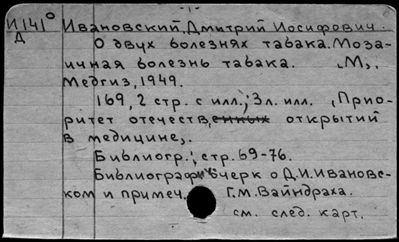 И141° Ивановский, Дмитрий Иосифович.
Д
О двух болезнях табака. Моза-
ичная болезнь табака. „М„.
Медгиз, 1949.
169, 2 стр. с илл.; 3 л. илл. „Прио-
ритет отечественных открытий
в медицине„.
Библиогр.: стр. 69-76.
Библиограф. очерк о Д.И. Ивановс-
ком и примеч. Г.М. Вайндраха.
см. след. карт.